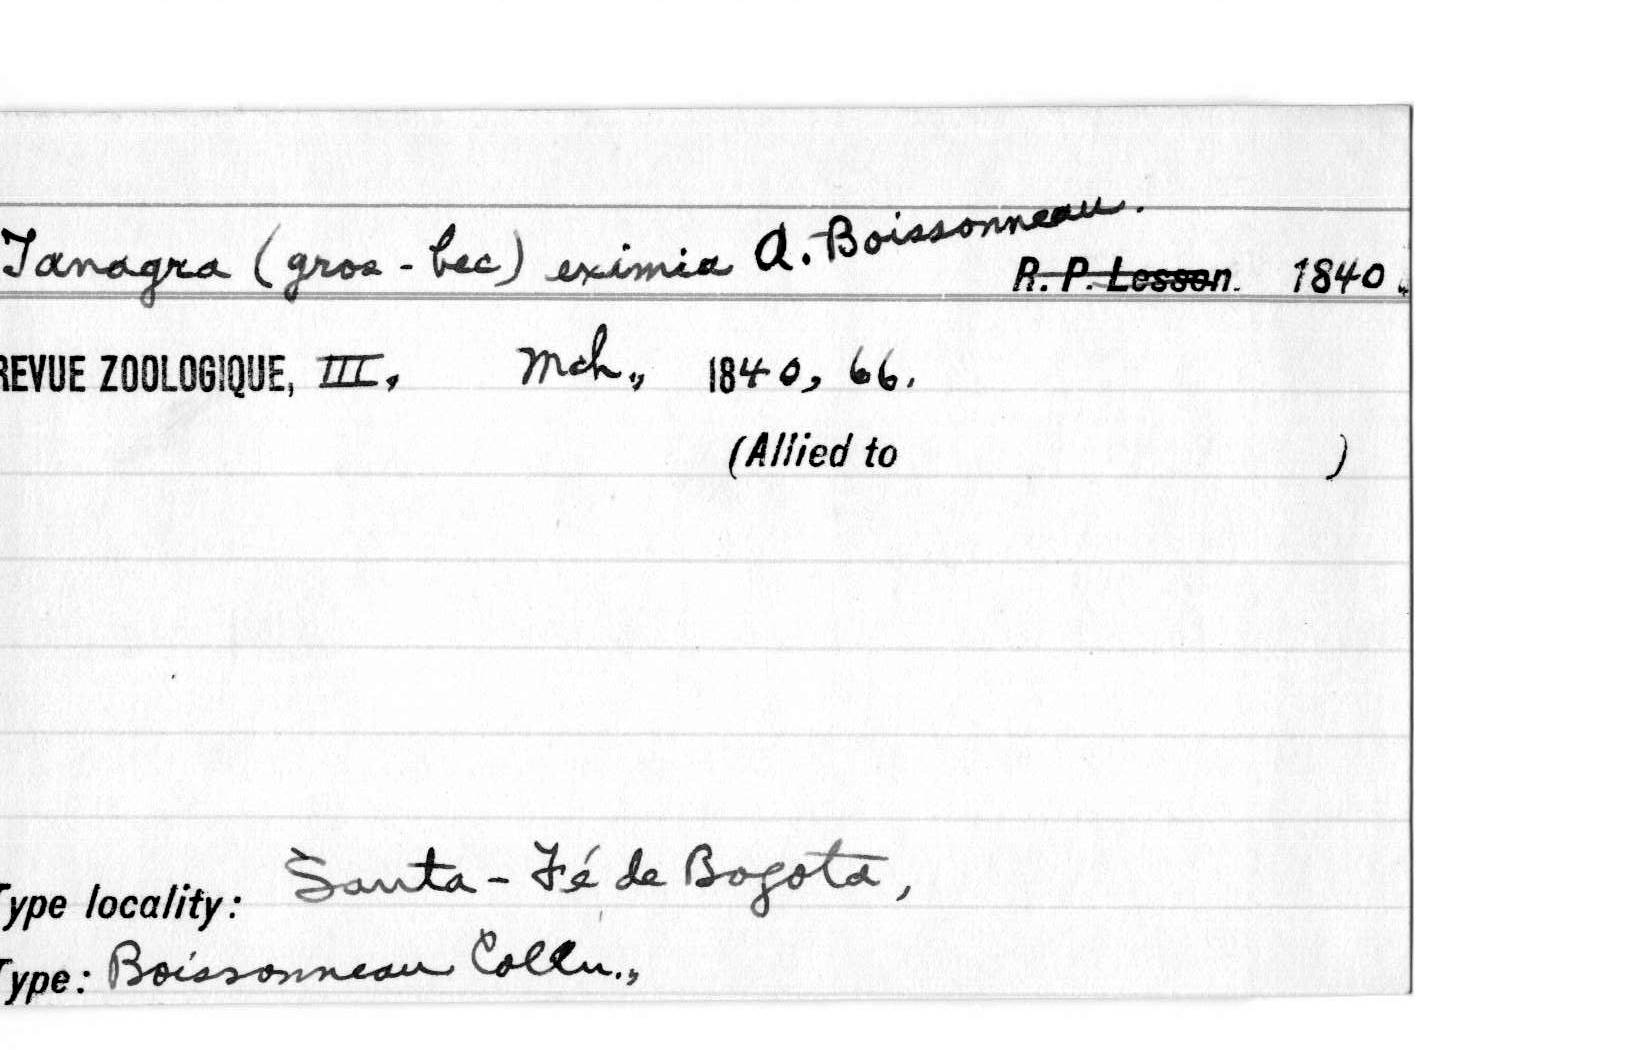 Tanagra (gros-bec) eximia A. Boissonneau.
R. P. Lesson. 1840.,
REVUE ZOOLOGIQUE, III, Mch., 1840, 66.
(Allied to )
Type locality: Santa-Fé de Bogota,
Type: Boissonneau Colln.,